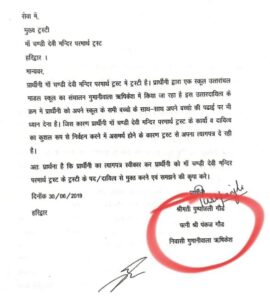 सेवा में,
मुख्य ट्रस्टी
माँ चण्डी देवी मन्दिर परमार्थ ट्रस्ट
हरिद्वार ।
मान्यवर,
प्रार्थीनी माँ चण्डी देवी परमार्थ ट्रस्ट ने ट्रस्टी है। प्रार्थीनी द्वारा एक स्कूल उत्तरांचल
माडल स्कूल का संचालन गुमानीवाला ऋषिकेश में किया जा रहा है इस उत्तरदायित्व के
क्रम में प्रार्थीनी को अपने स्कूल के सभी बच्चो के साथ-साथ अपने बच्चो की पढाई पर भी
ध्यान देना है। जिस कारण प्रार्थीनी माँ चण्डी देवी परमार्थ ट्रस्ट के कार्यो व दायित्व
का कुशल रूप से निर्वहन करने में असमर्थ होने के कारण ट्रस्ट से अपना त्यागपत्र दे रही
है।
अतः प्रार्थना है कि प्रार्थीनी का त्यागपत्र स्वीकार कर प्रार्थीनी को माँ चण्डी देवी मन्दिर
परमार्थ ट्रस्ट के ट्रस्टी के पद/दायित्व से मुक्त करने एवं समझने की कृपा करे।
दिनांक 30/06/2019
हरिद्वार
श्रीमती पुष्पांजली गौड
पत्नी श्री पंकज गौड
निवासी गुमानीवाला ऋषिकेश